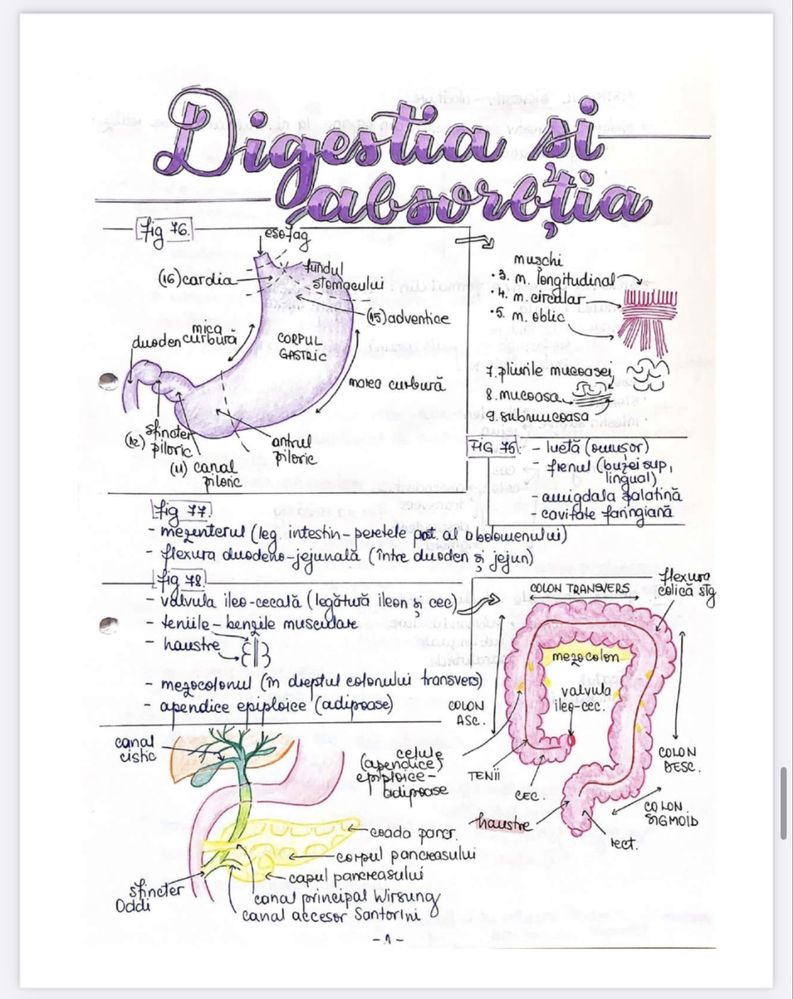 Digestia și
absorbția
Fig 76.
esofag
(16) cardia
fundul
stomacului
(15) adventice
mica
curbură
duoden
CORPUL
GASTRIC
marea curbură
sfincter
(12) piloric
(11) canal
piloric
antrul
piloric
mușchi
•3. m. longitudinal
•4. m. circular
•5. m. oblic
7. pliurile mucoasei
8. mucoasa
9. submucoasa
FIG 75:
- luetă (omușor)
- frenul (buzei sup,
lingual)
- amigdala palatină
- cavitate faringiană
Fig 77.
- mezenterul (leg. intestin-peretele post. al abdomenului)
- flexura duodeno-jejunală (între duoden și jejun)
Fig 78.
- valvula ileo-cecală (legătură ileon și cec)
- teniile - benzile musculare
- haustre
- mezocolonul (în dreptul colonului transvers)
- apendice epiploice (adipoase)
COLON TRANSVERS
flexura
colică stg
mezocolon
valvula
ileo-cec.
COLON
ASC.
TENII
CEC.
COLON
DESC.
COLON
SIGMOID
haustre
rect.
canal
cistic
celule
(apendice)
epiploice-
adipoase
coada pancr.
corpul pancreasului
capul pancreasului
canal principal Wirsung
canal accesor Santorini
sfincter
Oddi
-1-